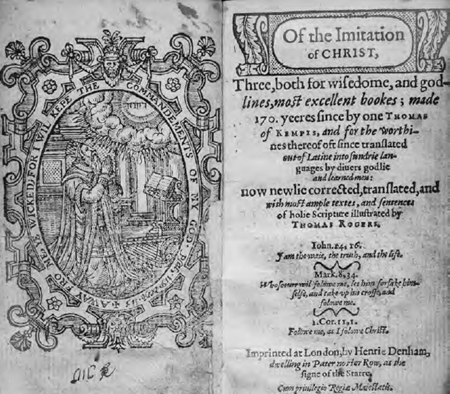 AWAY FRO ME YE WICKED: FOR I WIL KEPE THE COMMANDEMENTS OF MY GOD. PSAL.
Of the Imitation
of CHRIST,
Three, both for wisedome, and god-
lines, most excellent bookes; made
170. yeeres since by one THOMAS
of KEMPIS, and for the worthi-
nes thereof oft since translated
out of Latine into sundrie lan-
guages by diuers godlie
and learned men:
now newlie corrected, translated, and
with most ample textes, and sentences
of holie Scripture illustrated by
THOMAS ROGERS.
Iohn. 14, 16.
I am the waie, the truth, and the life.
Mark. 8, 34.
Whosoeuer will folowe me, let him forsake him-
selfe, and take vp his crosse, and
folowe me.
1. Cor. 11, 1.
Folowe me, as I folowe Christ.
Imprinted at London, by Henrie Denham,
dwelling in Pater noster Row, at the
signe of the Starre,
Cum priuilegio Regiæ Maiestatis.